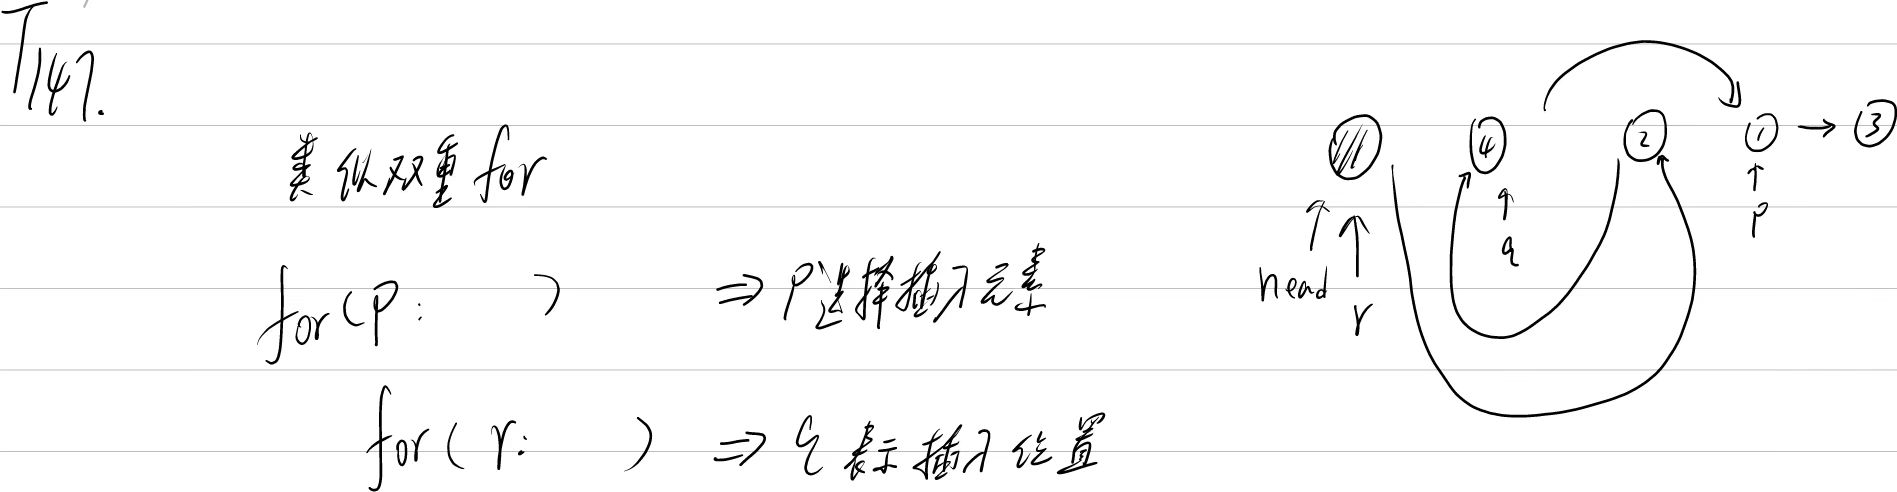 T147.
类似双重for
for(p: ) ⇒ P选择插入元素
for(r: ) ⇒ 表示插入位置
4 2 1 → 3
head r q p